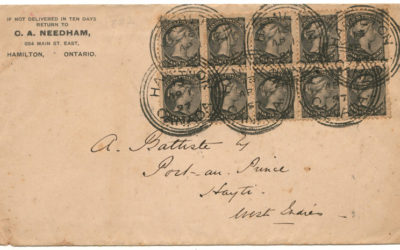 IF NOT DELIVERED IN TEN DAYS
RETURN TO
C. A. NEEDHAM,
654 MAIN ST. EAST,
HAMILTON, ONTARIO.
HAMILTON
CANADA
A. Battiste Esq
Port-au-Prince
Hayti
West Indies